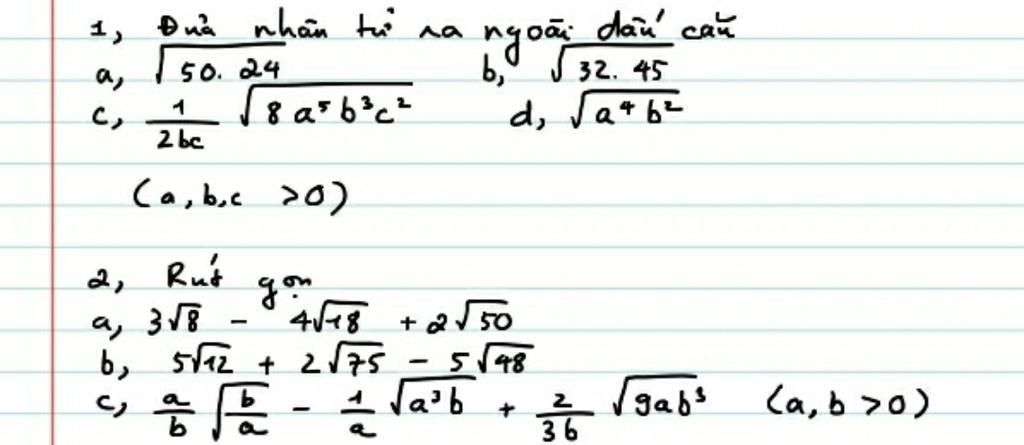 1, Đưa nhân tử ra ngoài dấu căn
a, √(50. 24) b, √(32. 45)
c, 1/(2bc) √(8a⁵b³c²) d, √(a⁴b²)
(a, b, c > 0)
2, Rút gọn
a, 3√8 - 4√18 + 2√50
b, 5√12 + 2√75 - 5√48
c, a/b √(b/a) - 1/a √(a³b) + 2/(3b) √(9ab³) (a, b > 0)